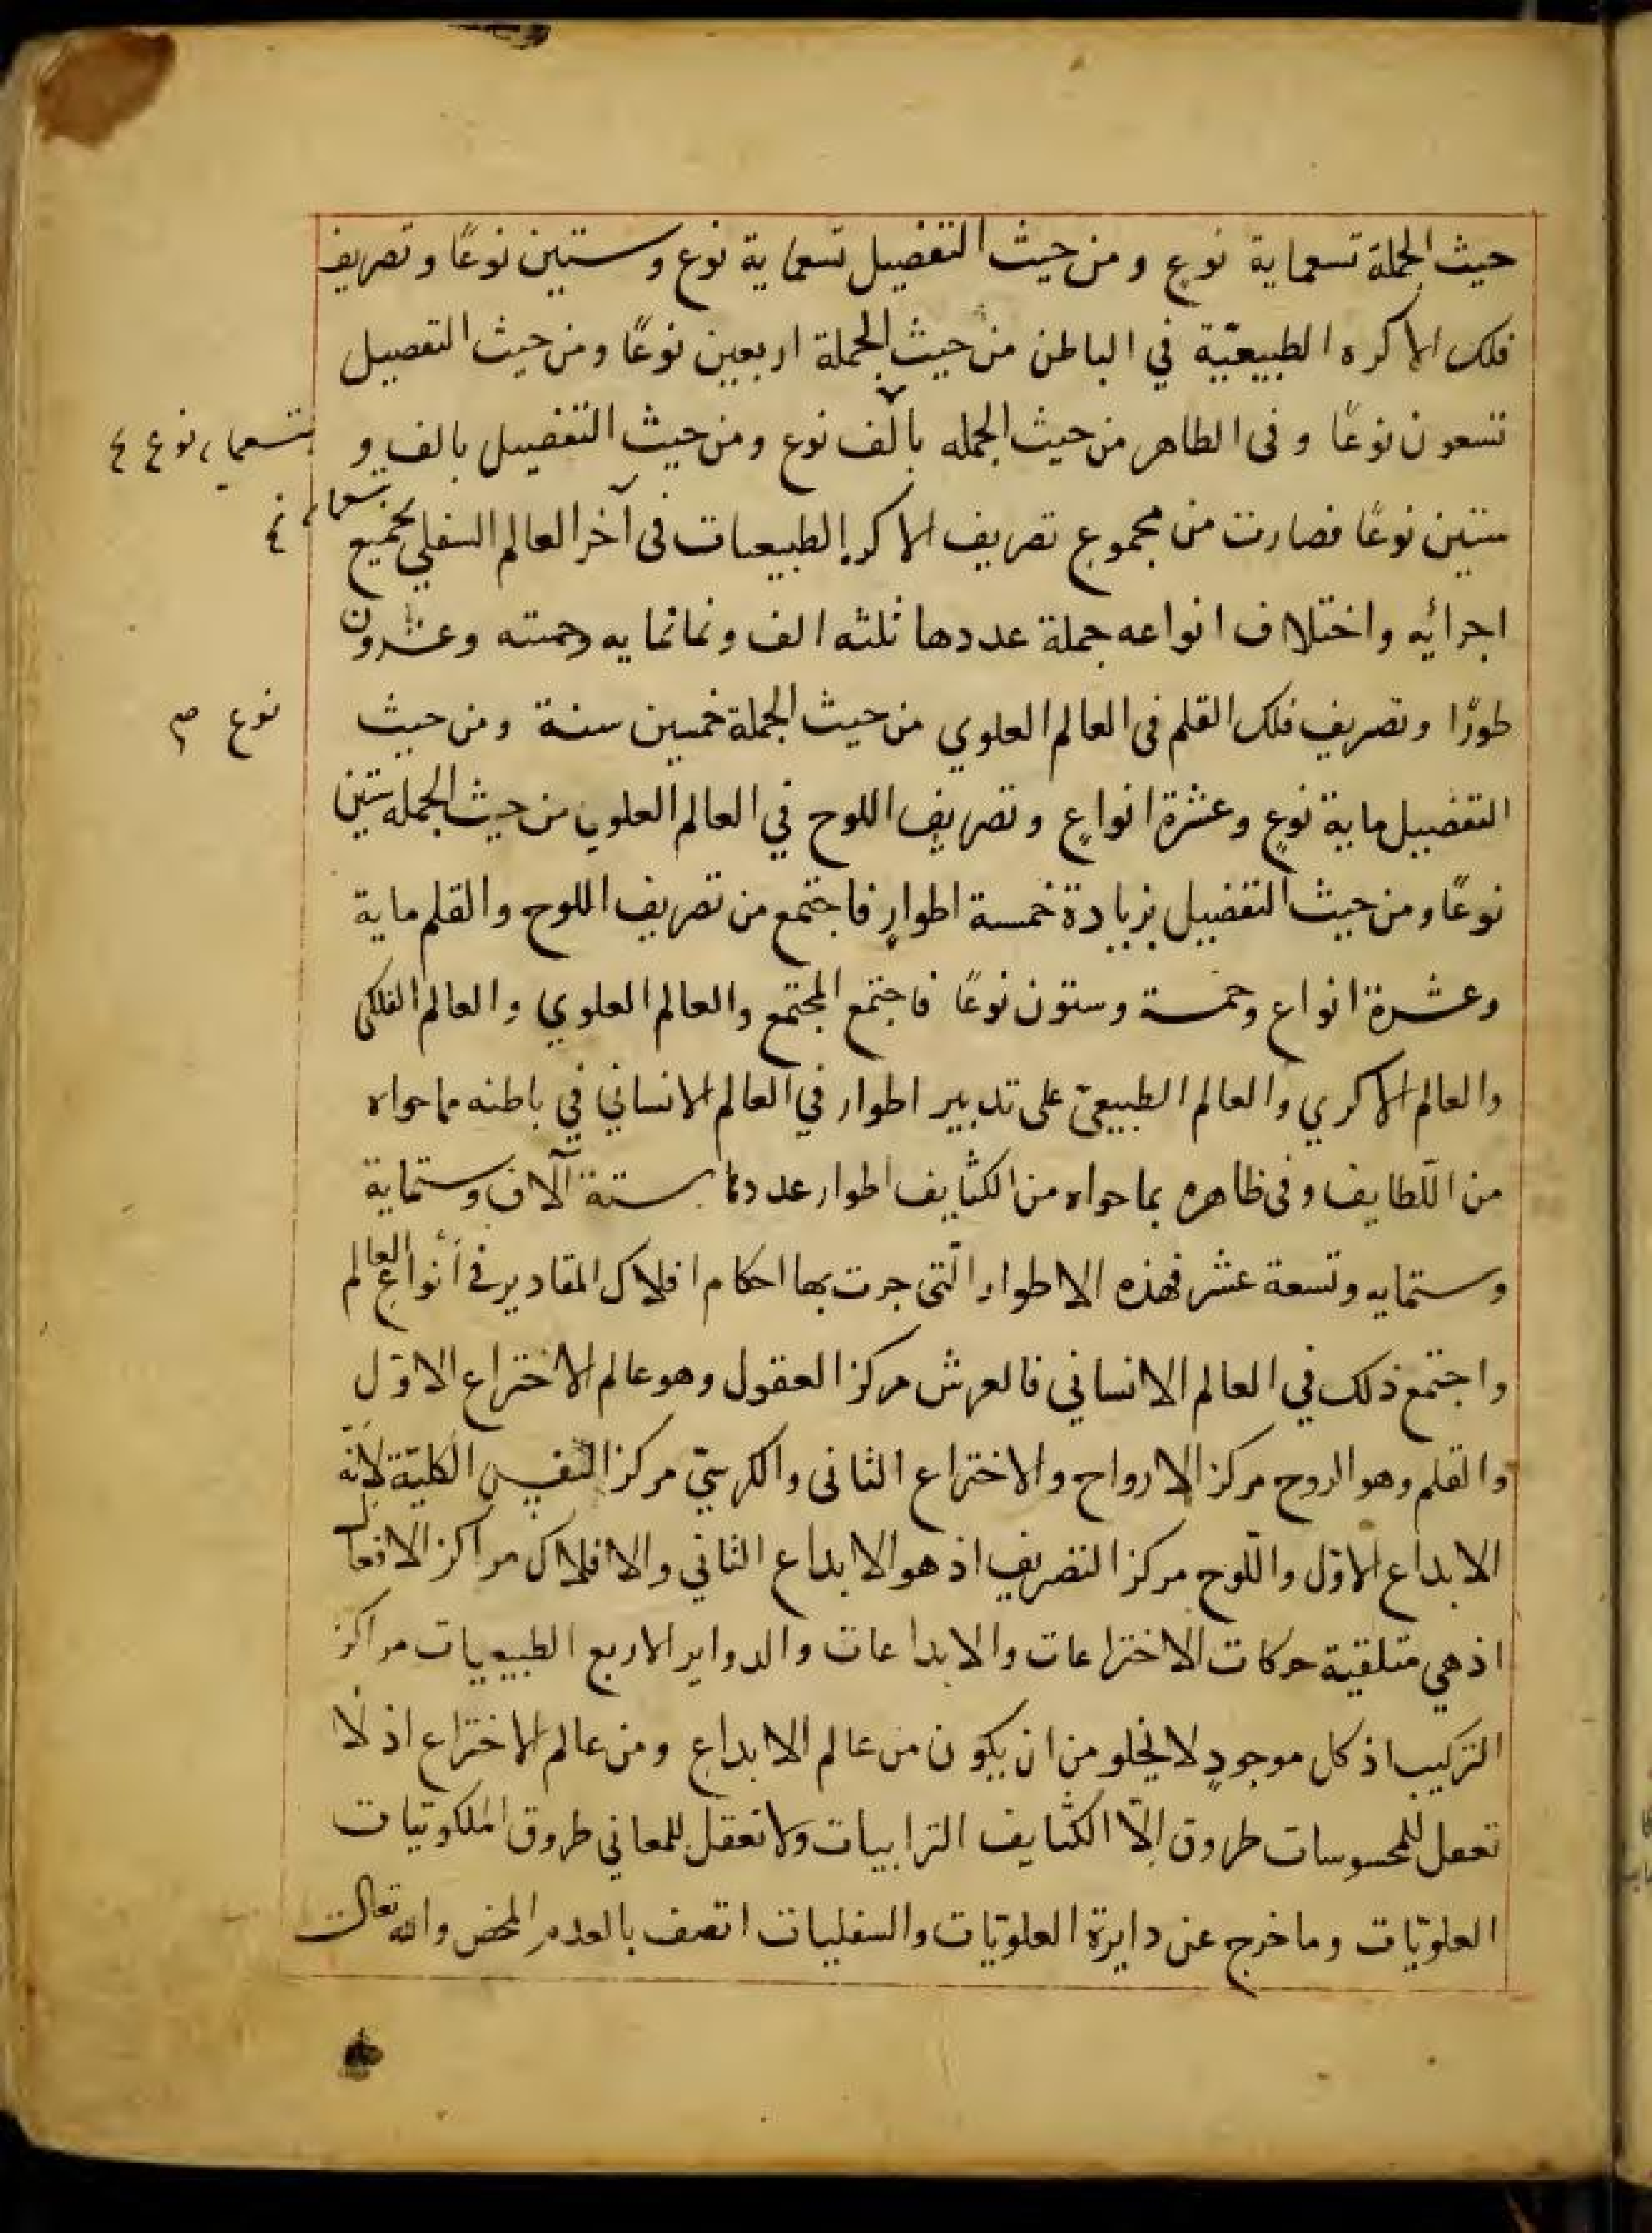 حيث الجملة تسعماية نوع ومن حيث التفصيل تسعماية نوع وستين نوعًا وتصريف
فلك الاكره الطبيعيّة في الباطن من حيث الجملة اربعين نوعًا ومن حيث التفصيل
تسعون نوعًا وفى الظاهر من حيث الجمله بالف نوع ومن حيث التفصيل بالف و
تسعماية نوع
ستين نوعًا فصارت من مجموع تصريف الاكر الطبيعيات فى آخر العالم السفلي بجميع
اجزائه واختلاف انواعه جملة عددها ثلثه الف وثمانمايه وخمسة وعشرون
طورًا وتصريف فلك القلم فى العالم العلوي من حيث الجملة خمسين سنة ومن حيث
نوع
التفصيل ماية نوعٍ وعشرة انواعٍ وتصريف اللوح في العالم العلوي من حيث الجملة ستين
نوعًا ومن حيث التفصيل بزيادة خمسة اطوارٍ فاجتمع من تصريف اللوح والقلم ماية
وعشرة انواع وخمسة وستون نوعًا فاجتمع المجتمع والعالم العلوي والعالم الفلكى
والعالم الاكري والعالم الطبيعىّ على تدبير اطوار في العالم الانساني في باطنه مما حواه
من اللّطايف وفى ظاهره بما حواه من الكثايف اطوار عددها ستة آلاف وستماية
وستمايه وتسعة عشر فهذه الاطوار الّتى جرت بها احكام افلاك المقادير فى أنواع العالم
واجتمع ذلك في العالم الانساني فالعرش مركز العقول وهو عالم الاختراع الاوّل
والقلم وهو الروح مركز الارواح والاختراع الثانى والكرسيّ مركز النفس الكليّة لانّه
الابداع الاوّل واللّوح مركز التصريف اذ هو الابداع الثاني والافلاك مراكز الافعال
اذ هي متلقية حركات الاختراعات والابداعات والدواير الاربع الطبيعيات مراكز
التركيب اذ كل موجودٍ لا يخلو من ان يكون من عالم الابداع ومن عالم الاختراع اذ لا
تعقل للمحسوسات طروق إلّا الكثايف الترابيات ولا تعقل للمعاني طروق الملكوتيات
العلويّات وما خرج عن دايرة العلويّات والسفليات اتصف بالعدم المحض والله تعالى